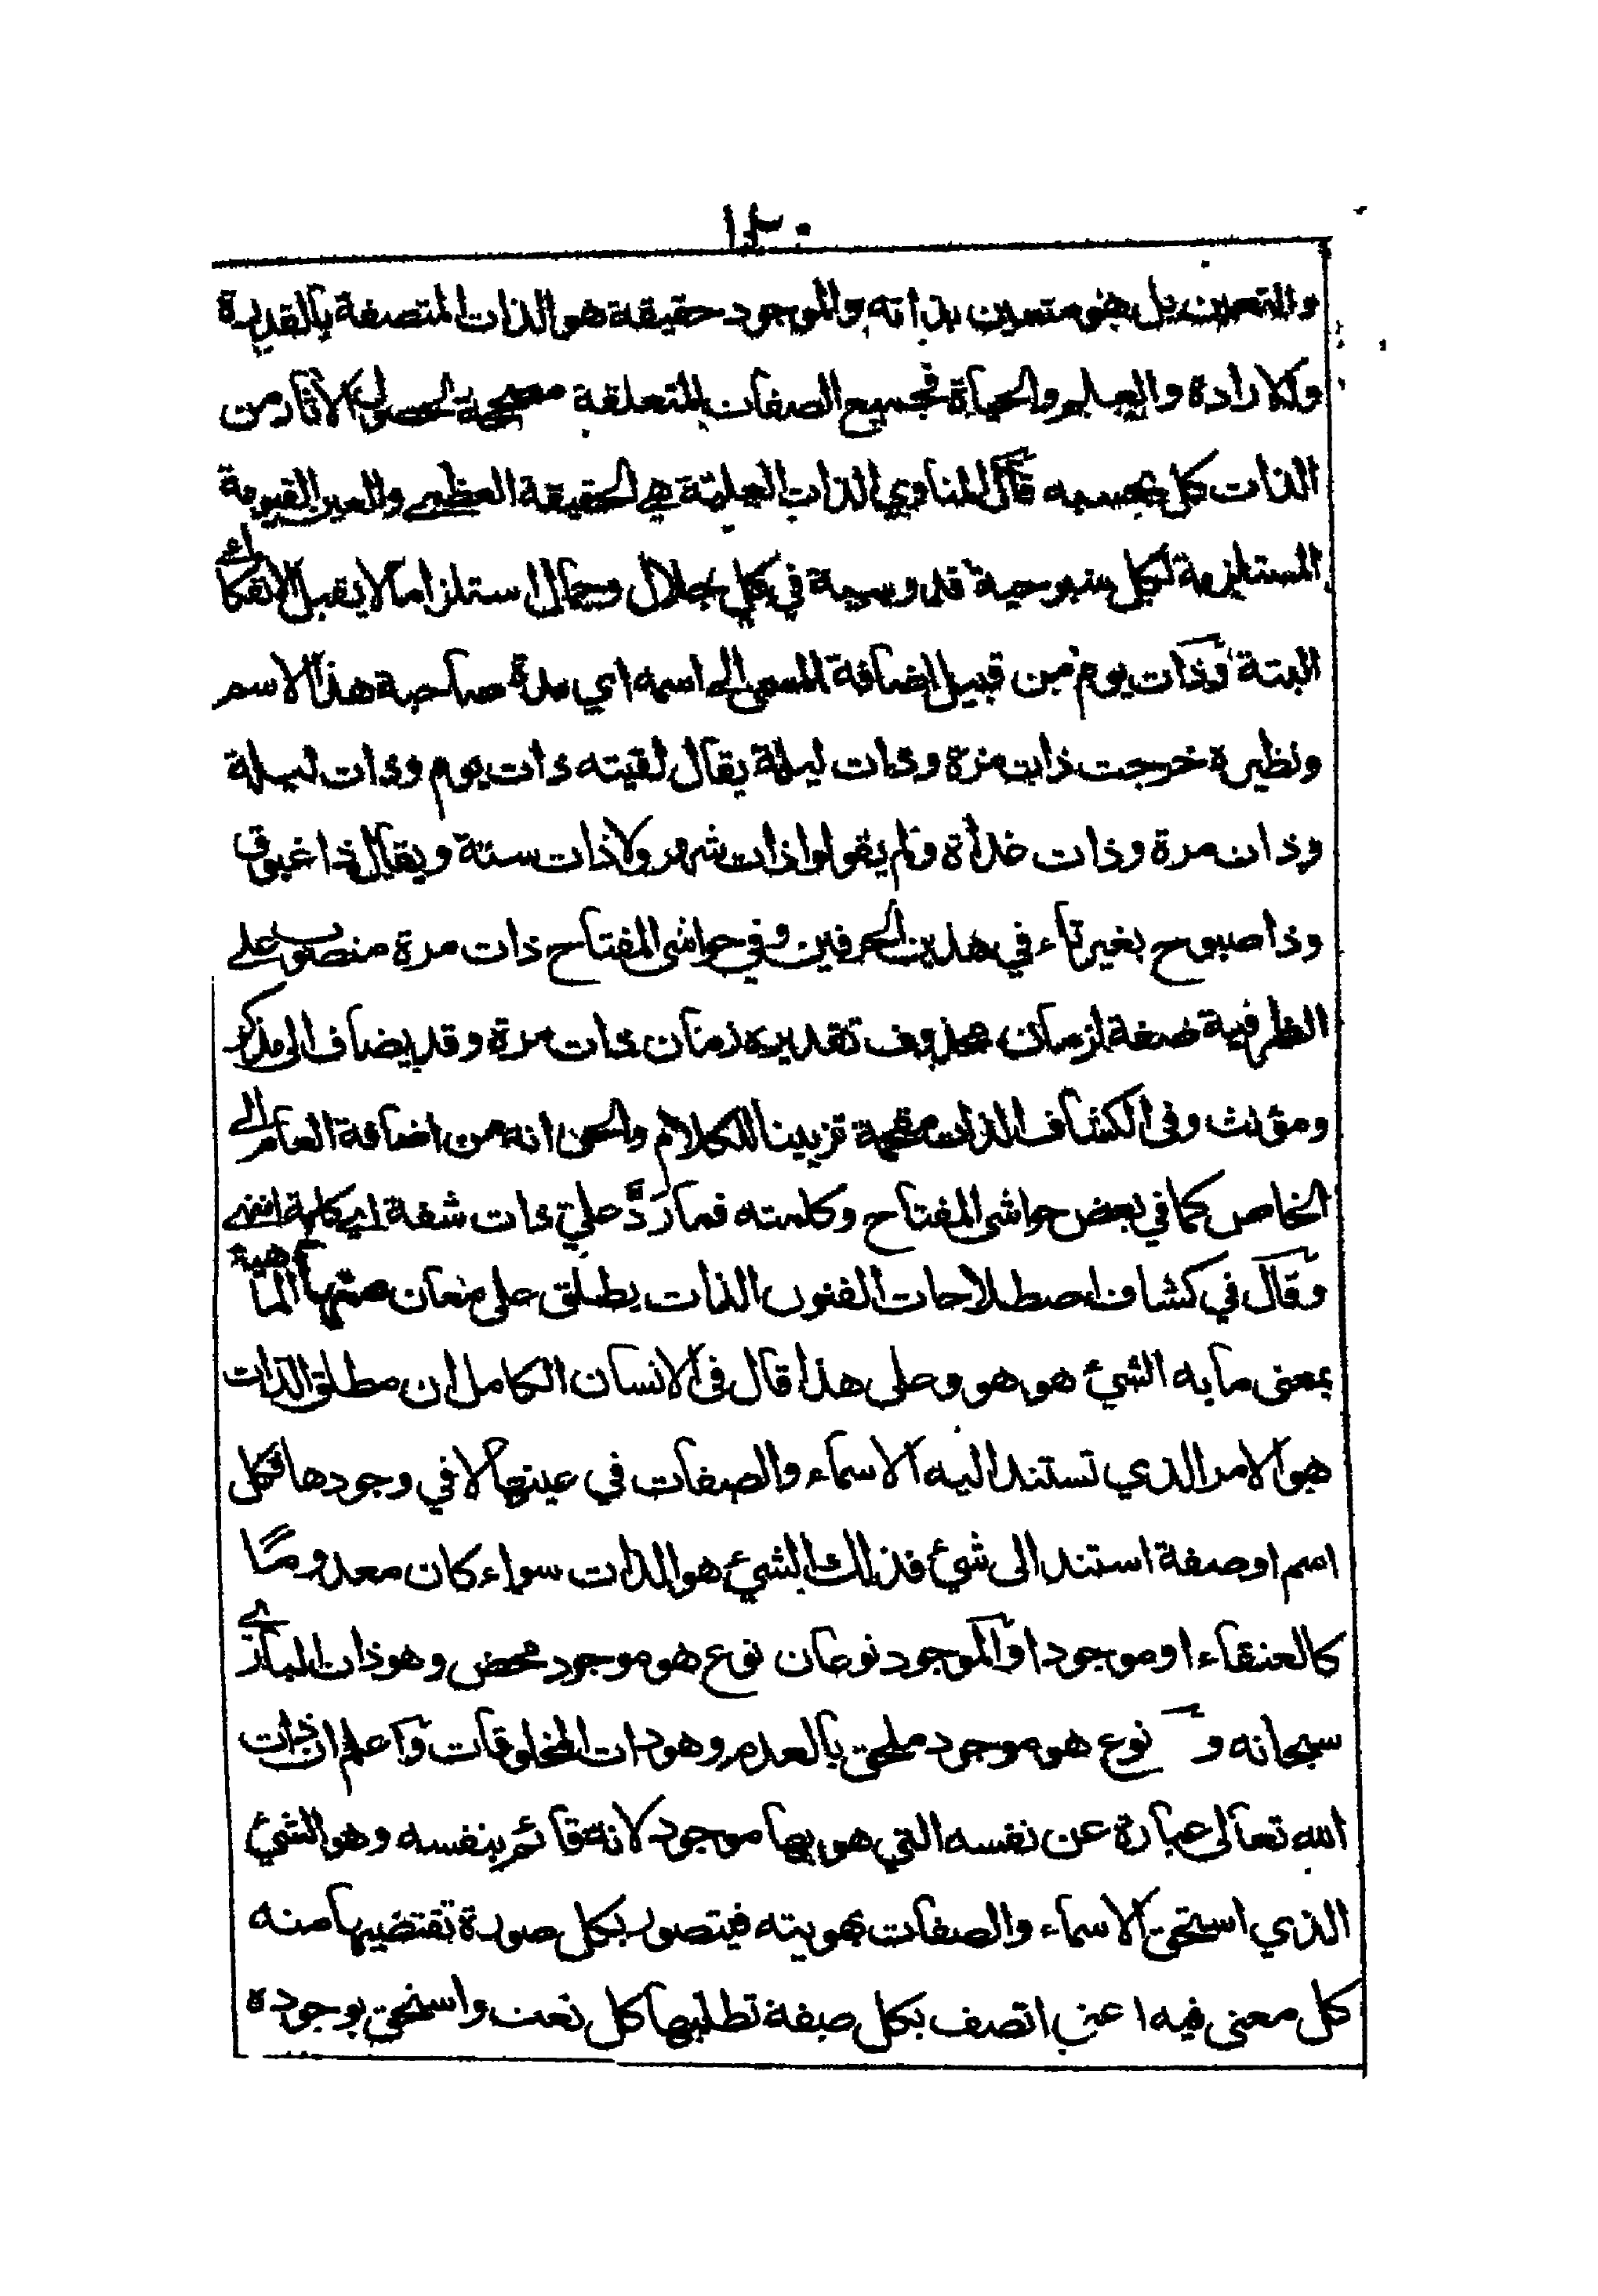 ١٣٠
والتعين بل هو متعين بذاته والموجود حقيقة هو الذات المتصفة بالقدرة
والارادة والعلم والحياة فجميع الصفات المتعلقة مصححة لحصول الآثار من
الذات كل بحسبه قال المناوي الذات العلية هي الحقيقة العظمى والعين القيومية
المستلزمة لكل سبوحية قدوسية في كل جلال وجمال استلزاما لا يقبل الانفكاك
البتة وذات يوم من قبيل اضافة المسمى الى اسمه اي مدة صاحبة هذا الاسم
ونظيره خرجت ذات مرة وذات ليلة يقال لقيته ذات يوم وذات ليلة
وذات مرة وذات غداة ولم يقولوا ذات شهر ولا ذات سنة ويقال ذا غبوق
وذا صبوح بغير تاء في هذين الحرفين وفي حواشى المفتاح ذات مرة منصوب على
الظرفية صفة لزمان محذوف تقديره زمان ذات مرة وقد يضاف الى مذكر
ومؤنث وفى الكشاف الذات مقحمة تزيينا للكلام والحق انه من اضافة العام الى
الخاص كما في بعض حواشى المفتاح وكلمته فما ردَّ علي ذات شفة اي كلمة انتهى
وقال في كشاف اصطلاحات الفنون الذات يطلق على معان منها الماهية
بمعنى ما به الشيئ هو هو وعلى هذا قال فى الانسان الكامل ان مطلق الذات
هو الامر الذي تستند اليه الاسماء والصفات في عينها لا في وجودها فكل
اسم او صفة استند الى شيئ فذلك الشيئ هو الذات سواء كان معدومًا
كالعنقاء او موجودا والموجود نوعان نوع هو موجود محض وهو ذات البارى
سبحانه و نوع هو موجود ملحق بالعدم وهو ذات المخلوقات واعلم ان ذات
الله تعالى عبارة عن نفسه التي هو بها موجود لانه قائم بنفسه وهو الشيئ
الذي استحق الاسماء والصفات بهويته فيتصور بكل صورة تقتضيها منه
كل معنى فيه اعني اتصف بكل صفة تطلبها كل نعت واستحق بوجوده